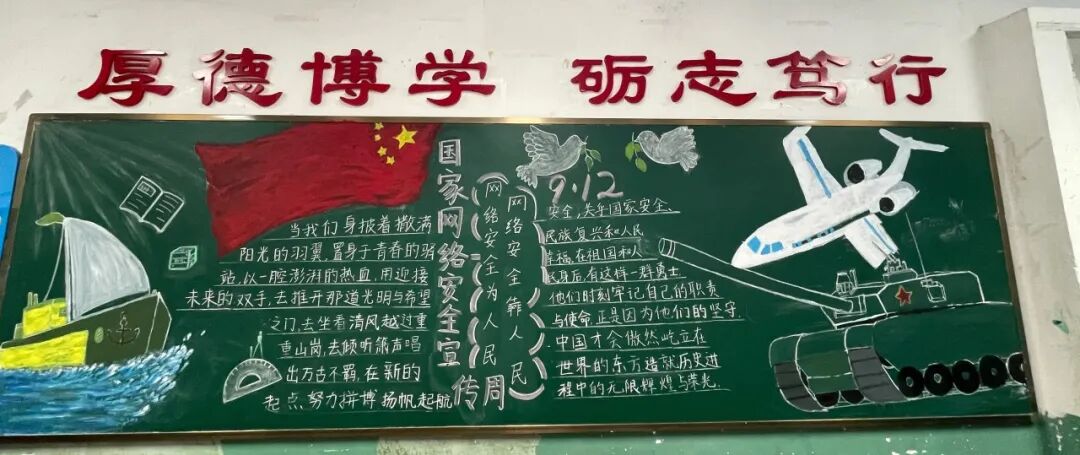 厚德博学 砺志笃行
当我们身披着撒满
阳光的羽翼,置身于青春的驿
站,以一腔澎湃的热血,用迎接
未来的双手,去推开那道光明与希望
之门,去坐看清风越过重
重山岗,去倾听箫声唱
出万古不羁,在新的
起点,努力拼搏 扬帆起航
国家网络安全宣传周
网络安全为人民
网络安全靠人民
9.12
安全,关乎国家安全、
民族复兴和人民
幸福,在祖国和人
民身后,有这样一群勇士
他们时刻牢记自己的职责
与使命,正是因为他们的坚守
中国才会傲然屹立在
世界的东方造就历史进
程中的无限辉煌与荣光.